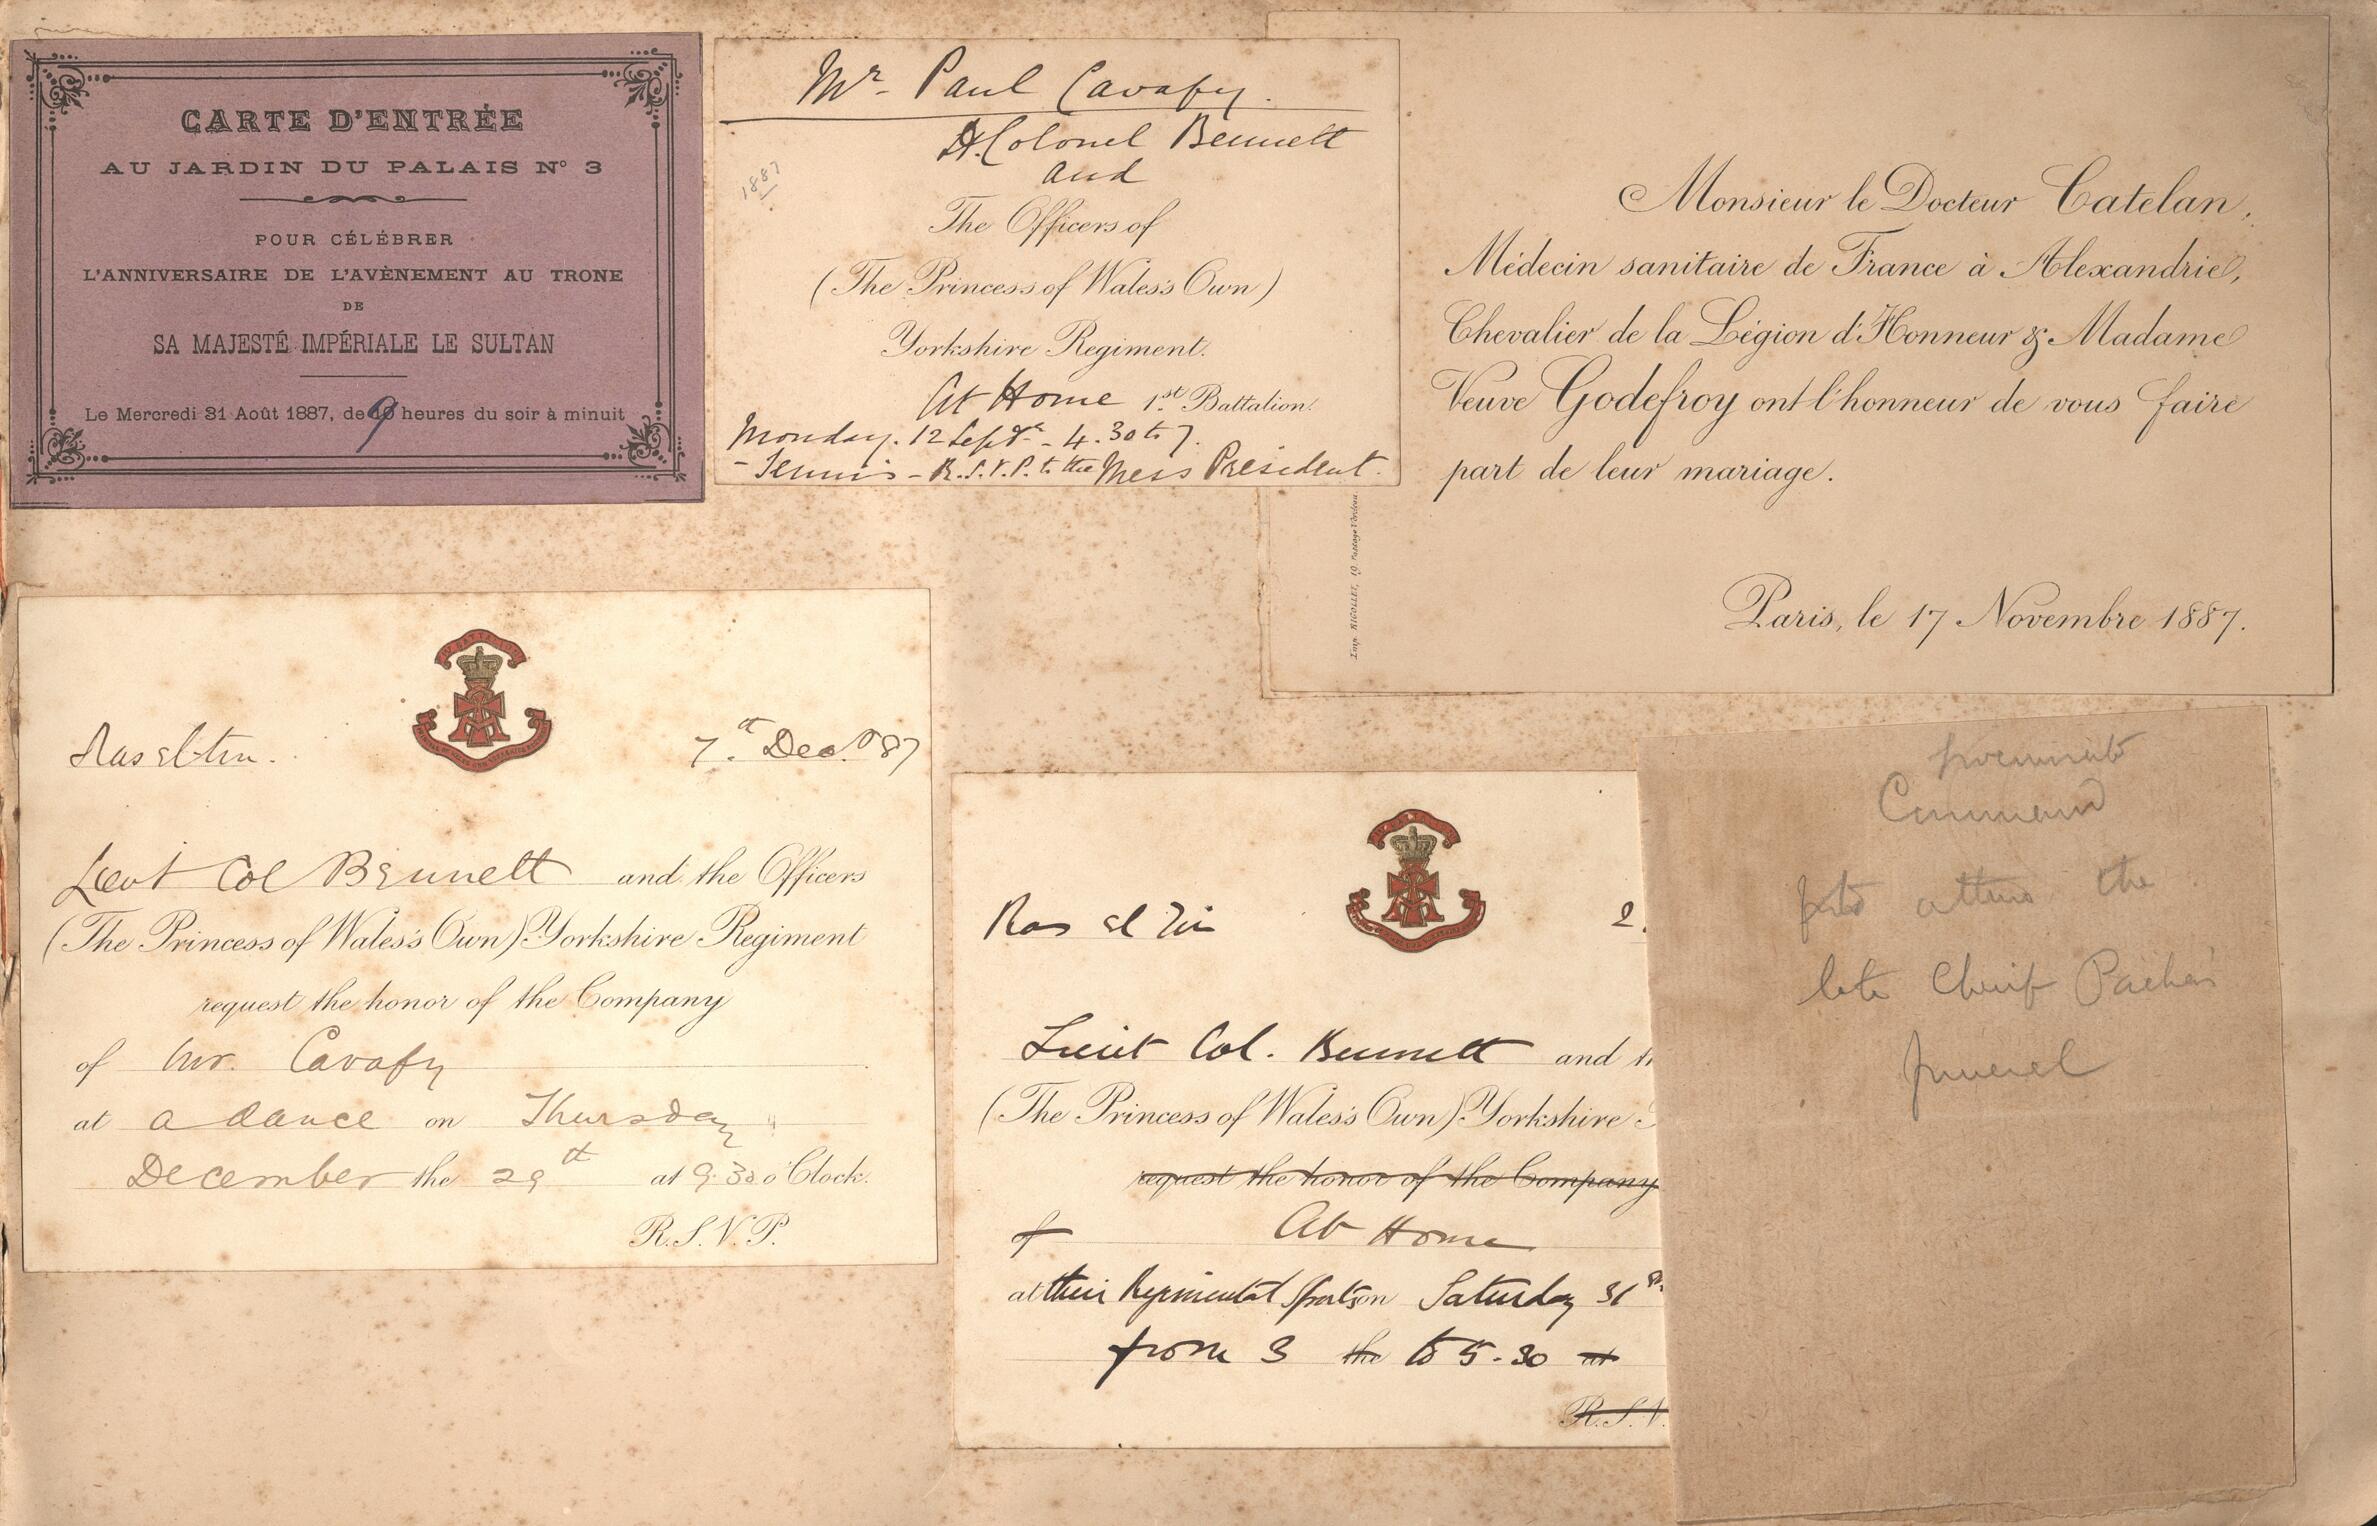 CARTE D'ENTRÉE
AU JARDIN DU PALAIS N° 3
POUR CÉLÉBRER
L'ANNIVERSAIRE DE L'AVÈNEMENT AU TRONE
DE
SA MAJESTÉ IMPÉRIALE LE SULTAN
Le Mercredi 31 Août 1887, de 9 heures du soir à minuit
Mr. Paul Cavafy.
1887
Lt. Colonel Bennett
and
The Officers of
(The Princess of Wales's Own)
Yorkshire Regiment.
At Home 1st Battalion.
Monday. 12 Septr. - 4.30 to 7.
- Tennis - R.S.V.P. to the Mess President.
Monsieur le Docteur Catelan,
Médecin sanitaire de France à Alexandrie,
Chevalier de la Légion d'Honneur & Madame
Veuve Godefroy ont l'honneur de vous faire
part de leur mariage.
Paris, le 17 Novembre 1887.
Imp. RIGOLLET, 19 Passage Verdeau
Ras el tin.
7th Dec. 87
Lieut Col Bennett and the Officers
(The Princess of Wales's Own) Yorkshire Regiment
request the honor of the Company
of Mr. Cavafy
at a dance on Thursday
December the 29th at 9.30 o'Clock.
R.S.V.P.
Ras el Tin
2.
Lieut Col. Bennett and th
(The Princess of Wales's Own) Yorkshire
request the honor of the Company
of At Home
at their Regimental Sports on Saturday 31st
from 3 the to 5.30 at
R.S.V.
Command
attend the
late Cherif Pacha's
funeral